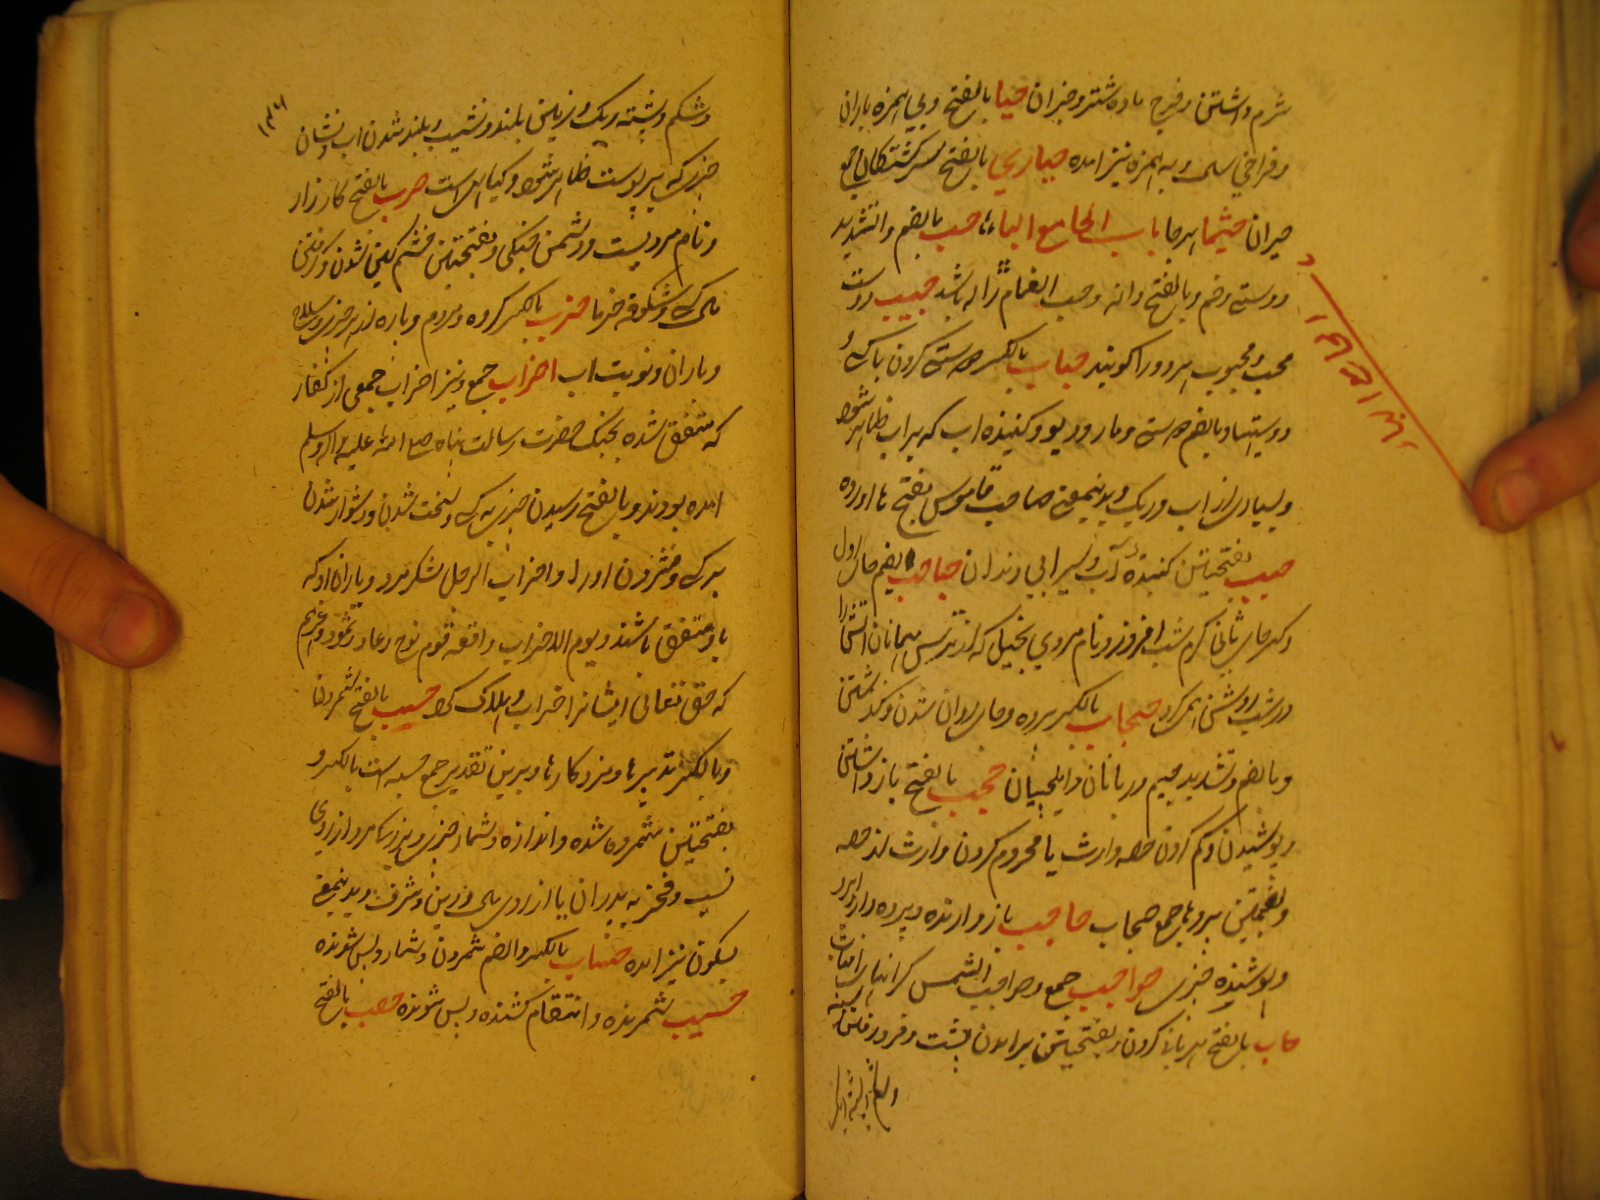 شرم داشتن و فرج ماده شتر و جز ان حیا بالفتح و بی همزه باران
و فراخی سال و به همزه نیز امده حیاری بالفتح سرکشتکان جمع
حیران حیثما هر جا باب الحا مع الباء حب بالضم والتشدید
دوستی و خم و بالفتح دانه و حب الغمام ژاله باشد حبیب دوست
محب و محبوب هر دو را کویند حباب بالکسر دوستی کردن با کسی و
دوستیها و بالضم دوستی و مار و دیو و کنبده اب که بر اب ظاهر شود
و بسیاری از اب و ریک و بدینمعنی صاحب قاموس بفتح حا اورده
حبب بفتحتین کنبدهٔ آب و سیرابی دندان حباحب بضم حای اول
و کسر حای ثانی کرم شب افروز و نام مردی بخیل که از ترس مهمانان اتش را
در شب روشن نمیکرد حجاب بالکسر پرده و حایل میان شدن و کذشتن
و بالضم و تشدید جیم دربانان و ایلچیان حجب بالفتح باز داشتن
و پوشیدن و کم کردن حصه وارث یا محروم کردن وارث از حصه
و بضمتین پردها جمع حجاب حاجب باز دارنده و پرده دار و ابرو
و پوشنده چیزی حواجب جمع و حواجب الشمس کرانهای افتاب
حدب بالفتح مهربانی کردن و بفتحتین برامدن پشت و فرو رفتن سینه
و شکم و پشته ریک و زمین بلند و نشیب و بلند شدن اب و نشان
چیزی که بر پوست ظاهر شود و کیاهی است حرب بالفتح کارزار
و نام مردیست و دشمن جنکی و بفتحتین خشم کین شدن و کرفتن
مال کسی و شکوفه خرما حزب بالکسر کروه مردم و پاره از هر چیزی و سلاح
و یاران و نوبت اب احزاب جمع و نیز احزاب جمعی از کفار
که متفق شده بجنک حضرت رسالت پناه صلی الله علیه و اله و سلم
امده بودند و بالفتح رسیدن چیزی بکسی و سخت شدن و دشوار شدن
بر کسی و فشردن اورا و احزاب الرجل لشکر مرد و یاران او که
با او متفق باشند و یوم الاحزاب واقعه قوم نوح و عاد و ثمود و غیرهم
که حق تعالی ایشانرا خراب و هلاک کرد حسب بالفتح شمردن
و بالکسر تدبیرها و مزد کارها و برین تقدیر جمع حسبه است بالکسر و
بفتحتین شمرده شده و اندازه و شمار چیزی و بزرکی مرد از روی
نسب و فخر به پدران یا از روی مال و دین و شرف و بدینمعنی
بسکون نیز امده حساب بالکسر والضم شمردن و شمار و بس شونده
حسیب شمرنده و انتقام کشنده و بس شونده حصب بالفتح